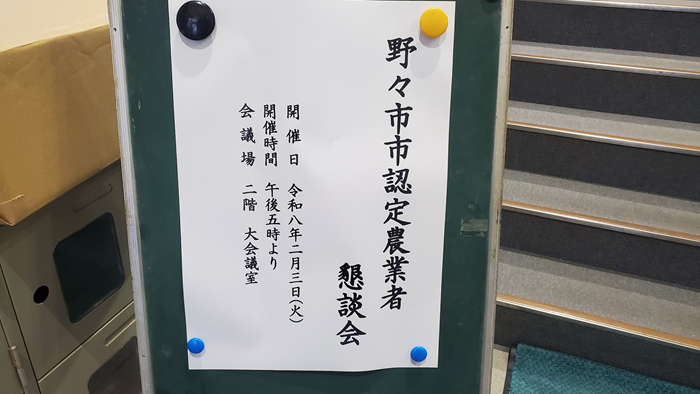 野々市市認定農業者
懇談会
開催日 令和八年二月三日(火)
開催時間 午後五時より
会議場 二階 大会議室